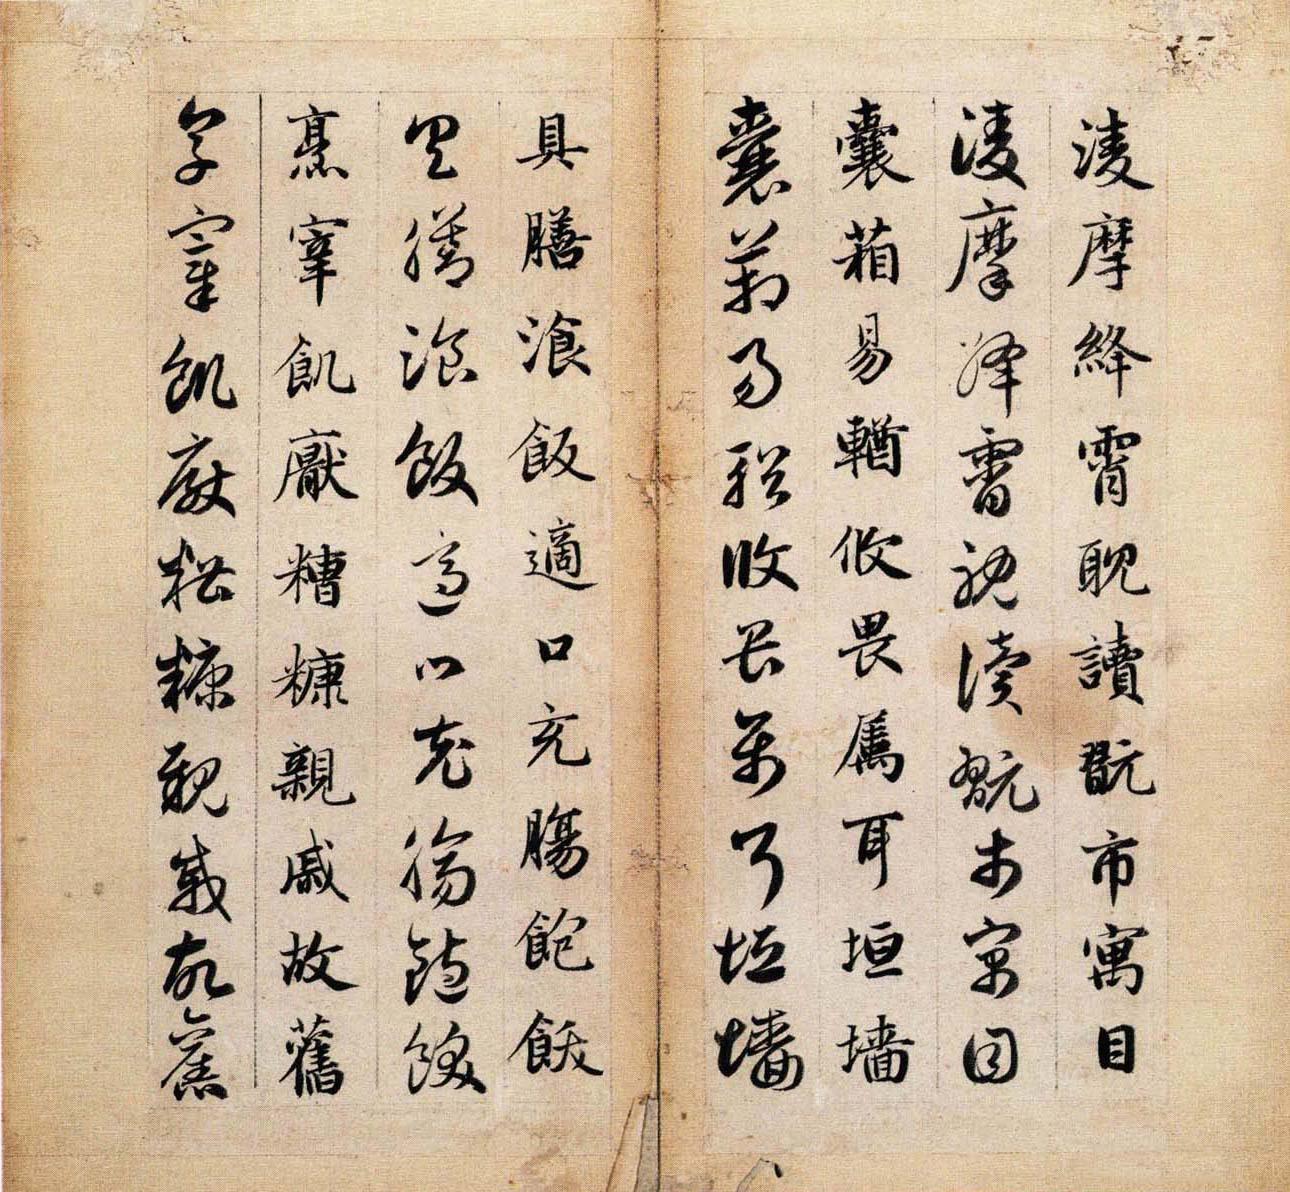 淩摩絳霄耽讀翫市寓目
淩摩絳霄耽讀翫市寓目
囊葙易輶攸畏属耳垣墙
囊葙易輶攸畏属耳垣墙
具膳湌飯適口充腸飽飫
具膳湌飯適口充腸飽飫
烹宰飢厭糟糠親戚故舊
烹宰飢厭糟糠親戚故舊